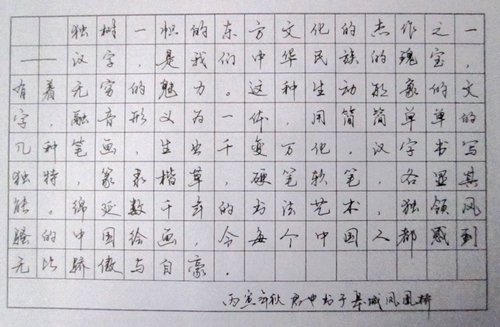 独树一帜的东方文化的杰作之一
——汉字,是我们中华民族的瑰宝,
有着无穷的魅力。这种生动形象的文
字,融音形义为一体,用简简单单的
几种笔画,生出千变万化,汉字书写
独特,篆隶楷草,硬笔软笔,各显其
能。绵延数千年的书法艺术,独领风
骚的中国绘画,令每个中国人都感到
无比骄傲与自豪。
秋 书于阜城凤凰桥